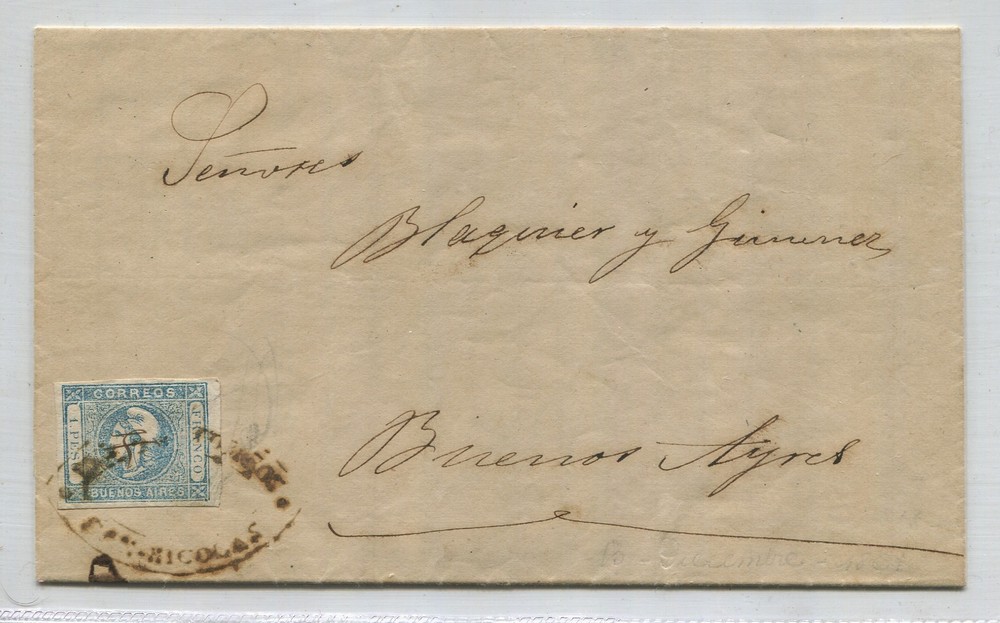 Señores
Blaquier y Gimenez
Buenos Ayres
CORREOS
1 PES
FRANCO
BUENOS AIRES
SAN NICOLAS
Diciembre